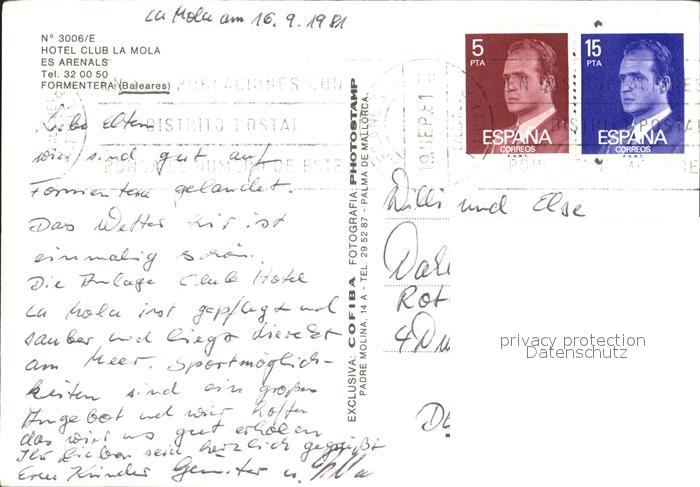 La Mola am 16.9.1981
N° 3006/E
HOTEL CLUB LA MOLA
ES ARENALS
Tel. 32 00 50
FORMENTERA (Baleares)
Liebe Eltern
wir sind gut auf
Formentera gelandet.
Das Wetter hir ist
einmalig schön.
Die Anlage Club Hotel
La Mola ist gepflegt und
sauber und liegt direckt
am Meer. Sportmöglich-
keiten sind ein großes
Angebot und wir hoffen
das wir uns gut erholen
Ihr Lieben seid herzlich gegrüßt
Eure Kinder u.
EXCLUSIVA: COFIBA FOTOGRAFIA: PHOTOSTAMP
PADRE MOLINA, 14 A - TEL. 29 52 87 - PALMA DE MALLORCA.
5
PTA
ESPAÑA
CORREOS
F.N.M.T.
15
PTA
ESPAÑA
CORREOS
F.N.M.T.
POBLACIONES CON
DISTRITO POSTAL
PONGA NUMERO DE ESTE
SEP.81
Willi und Else
Rot
4 Du
privacy protection
Datenschutz